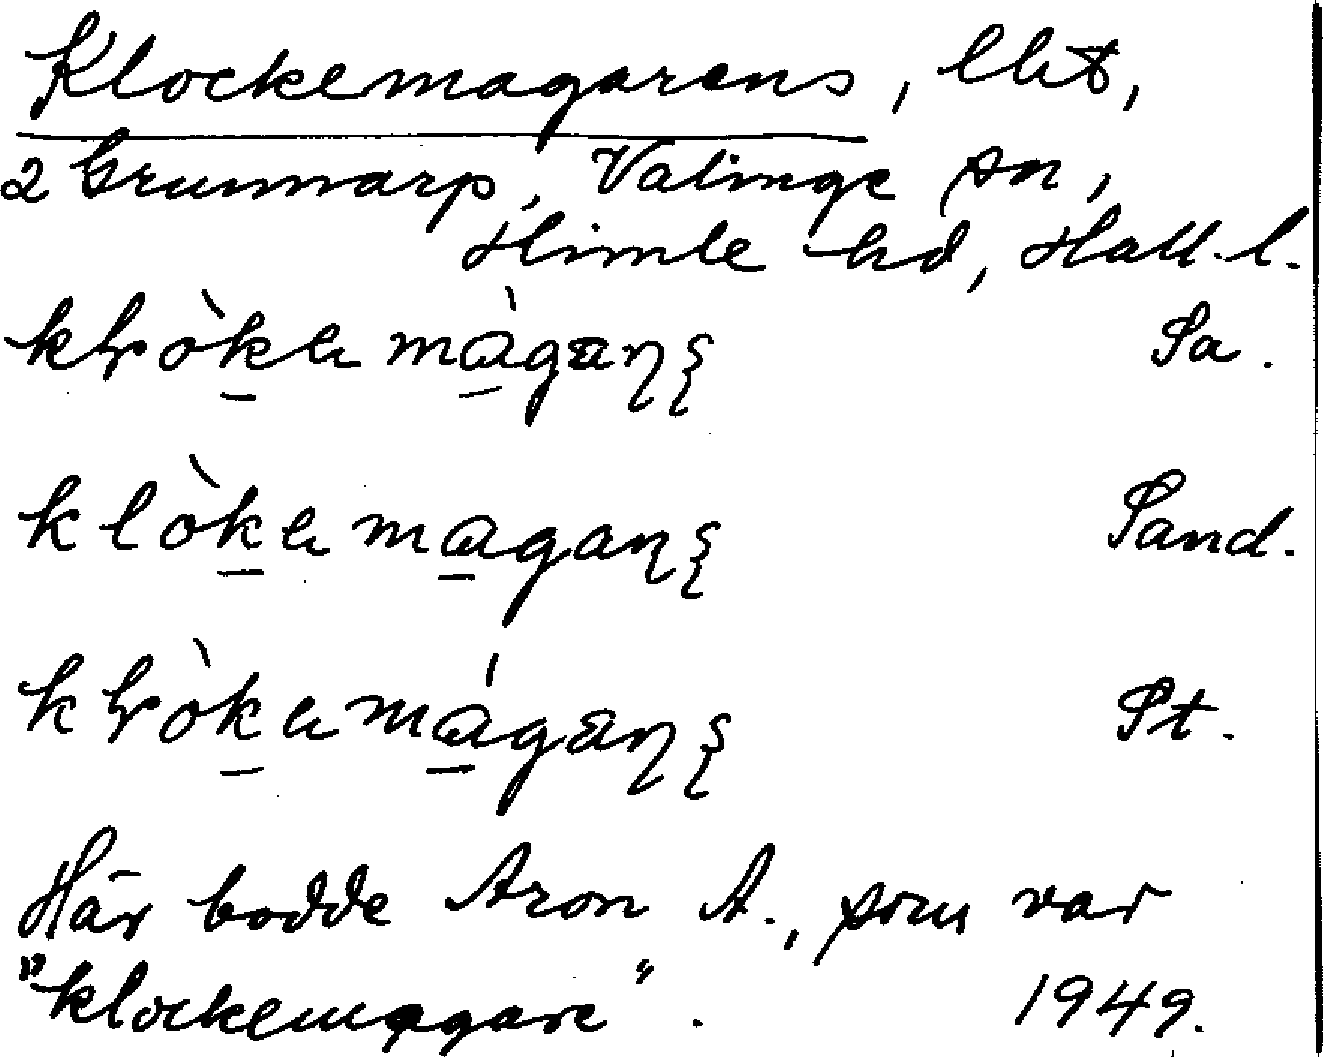 Klockemagarens, lht,
2 Grunnarp, Valinge sn,
Himle hd, Hall. l.
Sa.
Sand.
St.
Här bodde Aron A., som var
"klockemagare". 1949.